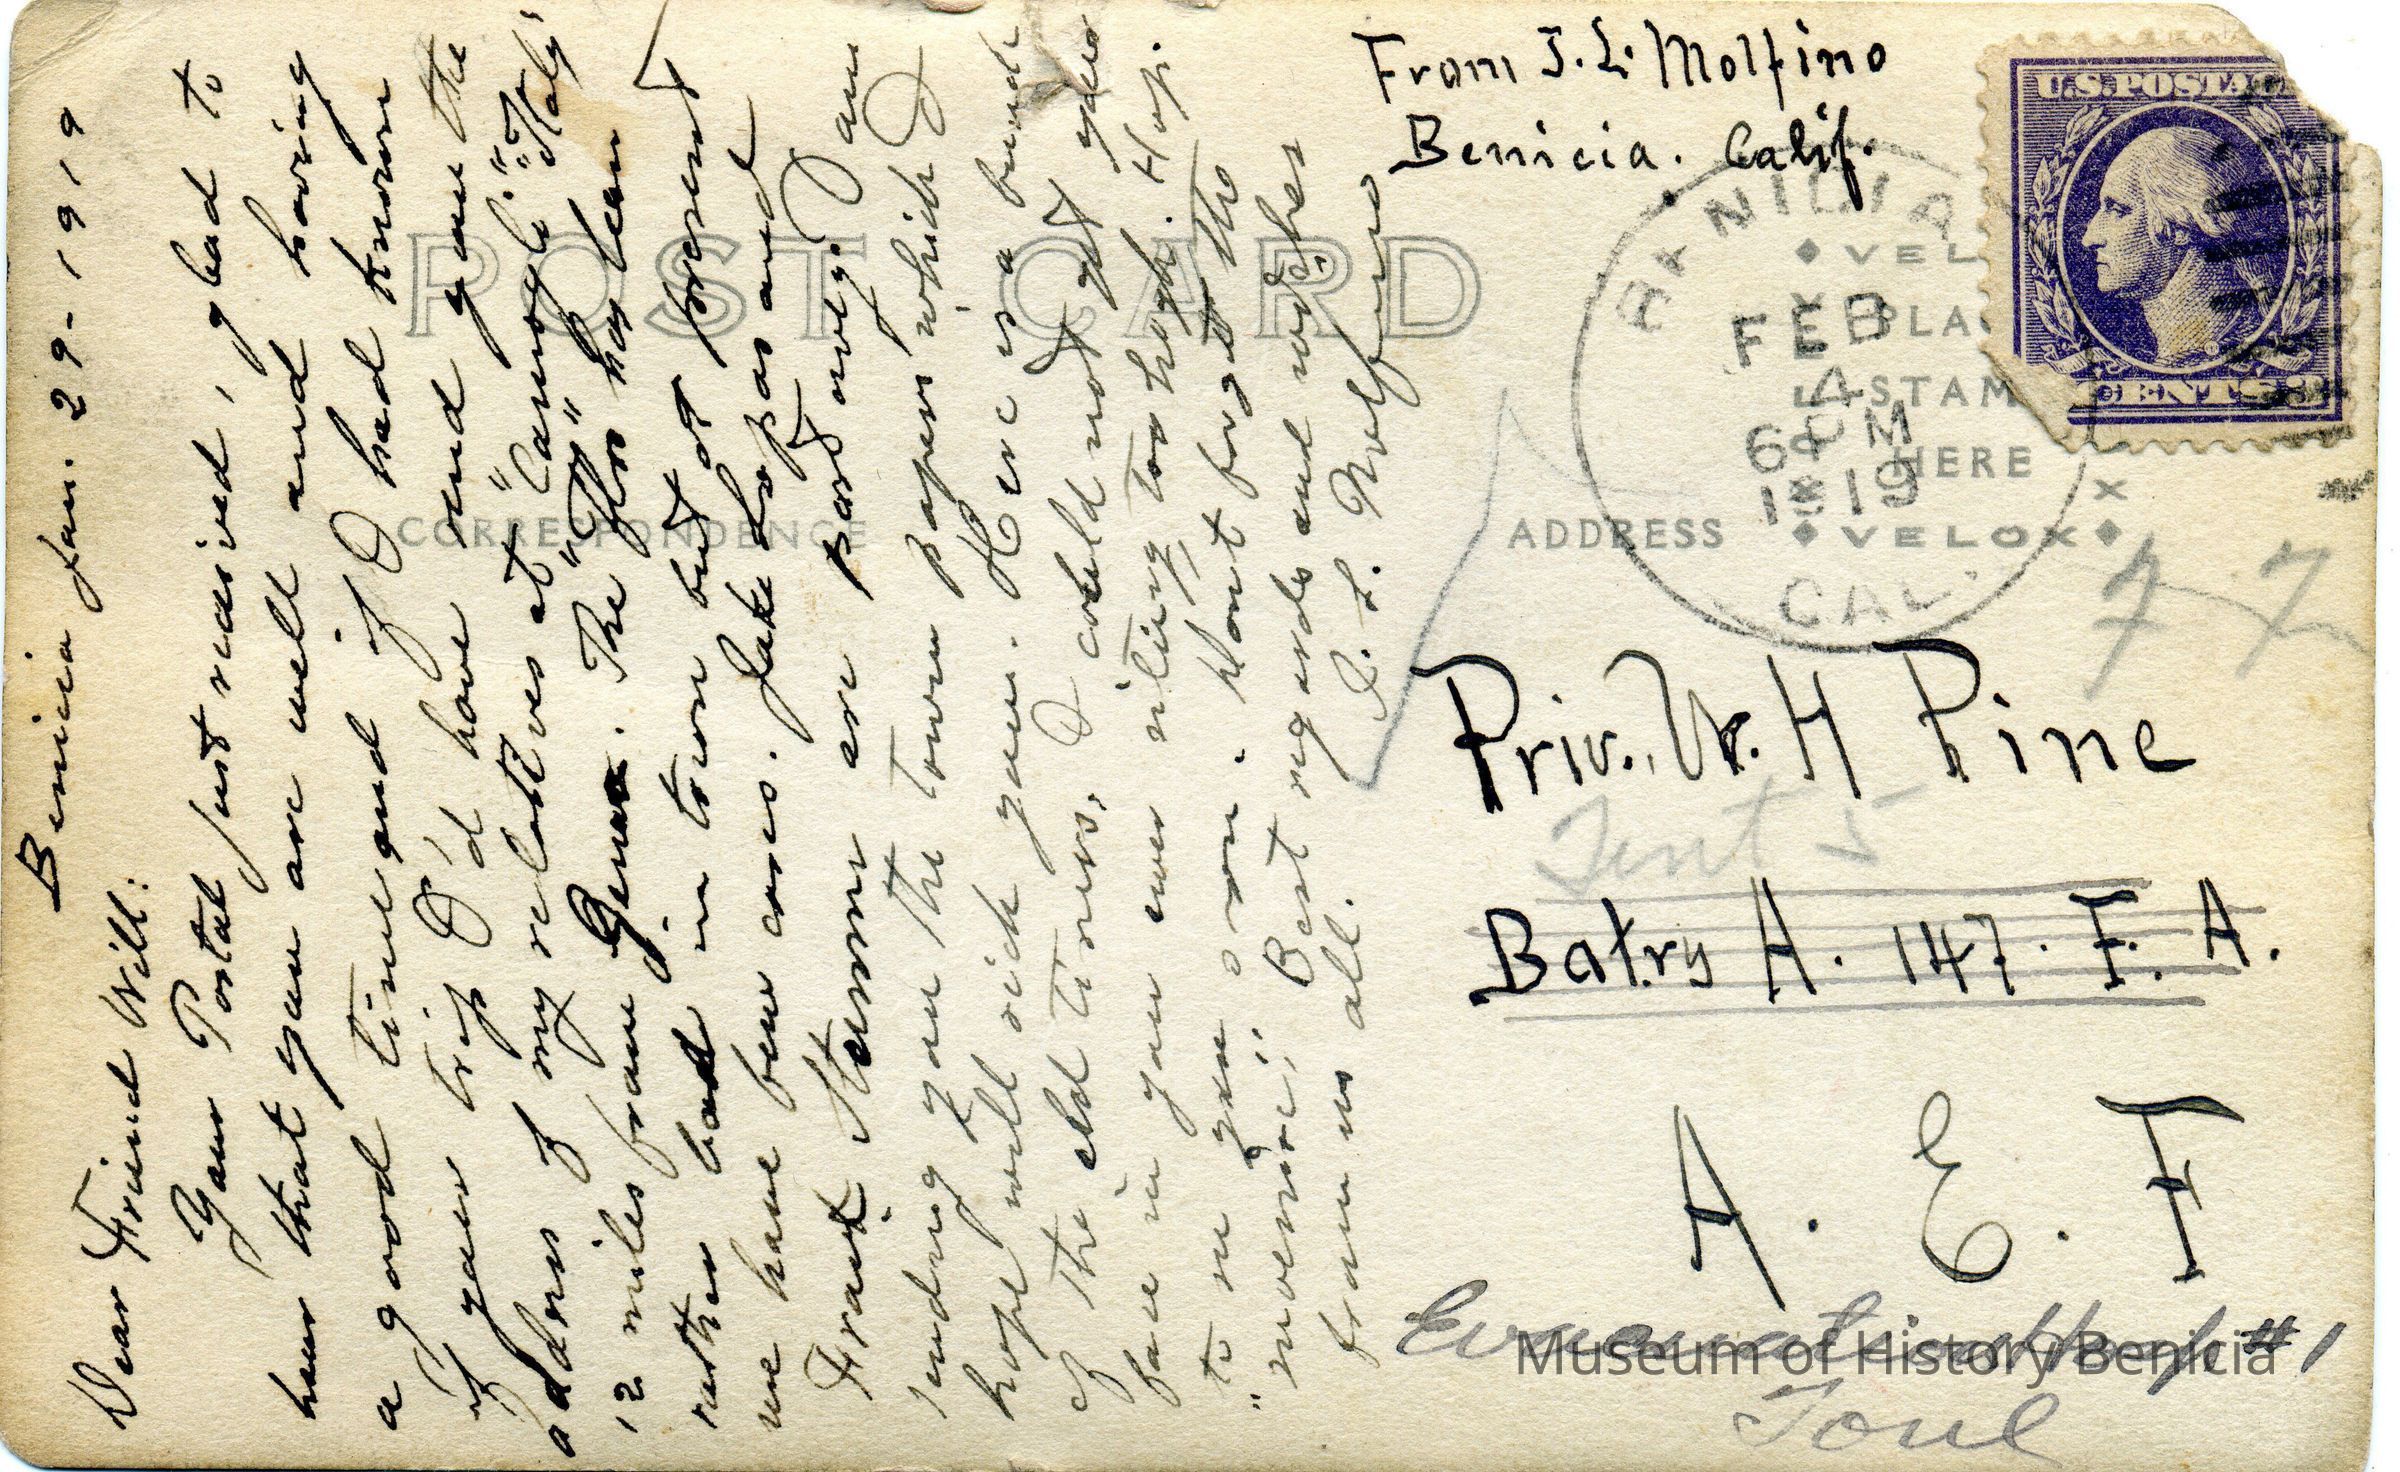 Benicia Jan. 29-1919
Dear Friend Will:
Your Postal just received, glad to
hear that you are well and having
a good time and if I had known
of your trip I'd have send you the
address of my relatives at "Camogli" "Italy"
12 miles from Genoa. The "Flu" has been
rather bad in town but at present
we have few cases. Jake Lopas and
Frank Stumm are part owegs. I am
sending you the town paper which I
hope will reach you. Here is a bunch
of the old timers, I could not get your
face in your ever siling too high. Hop.
to see you soon. Dont forget the
"suvenire". Best regards and wishes
from us all. J. L. Molfino
From J. L. Molfino
Benicia. Calif.
U.S. POSTAGE
CENTS
POST CARD
CORRESPONDENCE
ADDRESS
VELOX
PLACE
STAMP
HERE
VELOX
BENICIA
FEB
4
6 PM
1919
CAL.
77
Priv. W. H Pine
Tent 5
Batry A. 147. F. A.
A. E. F
Evacuation Hosp #1
Toul
Museum of History Benicia